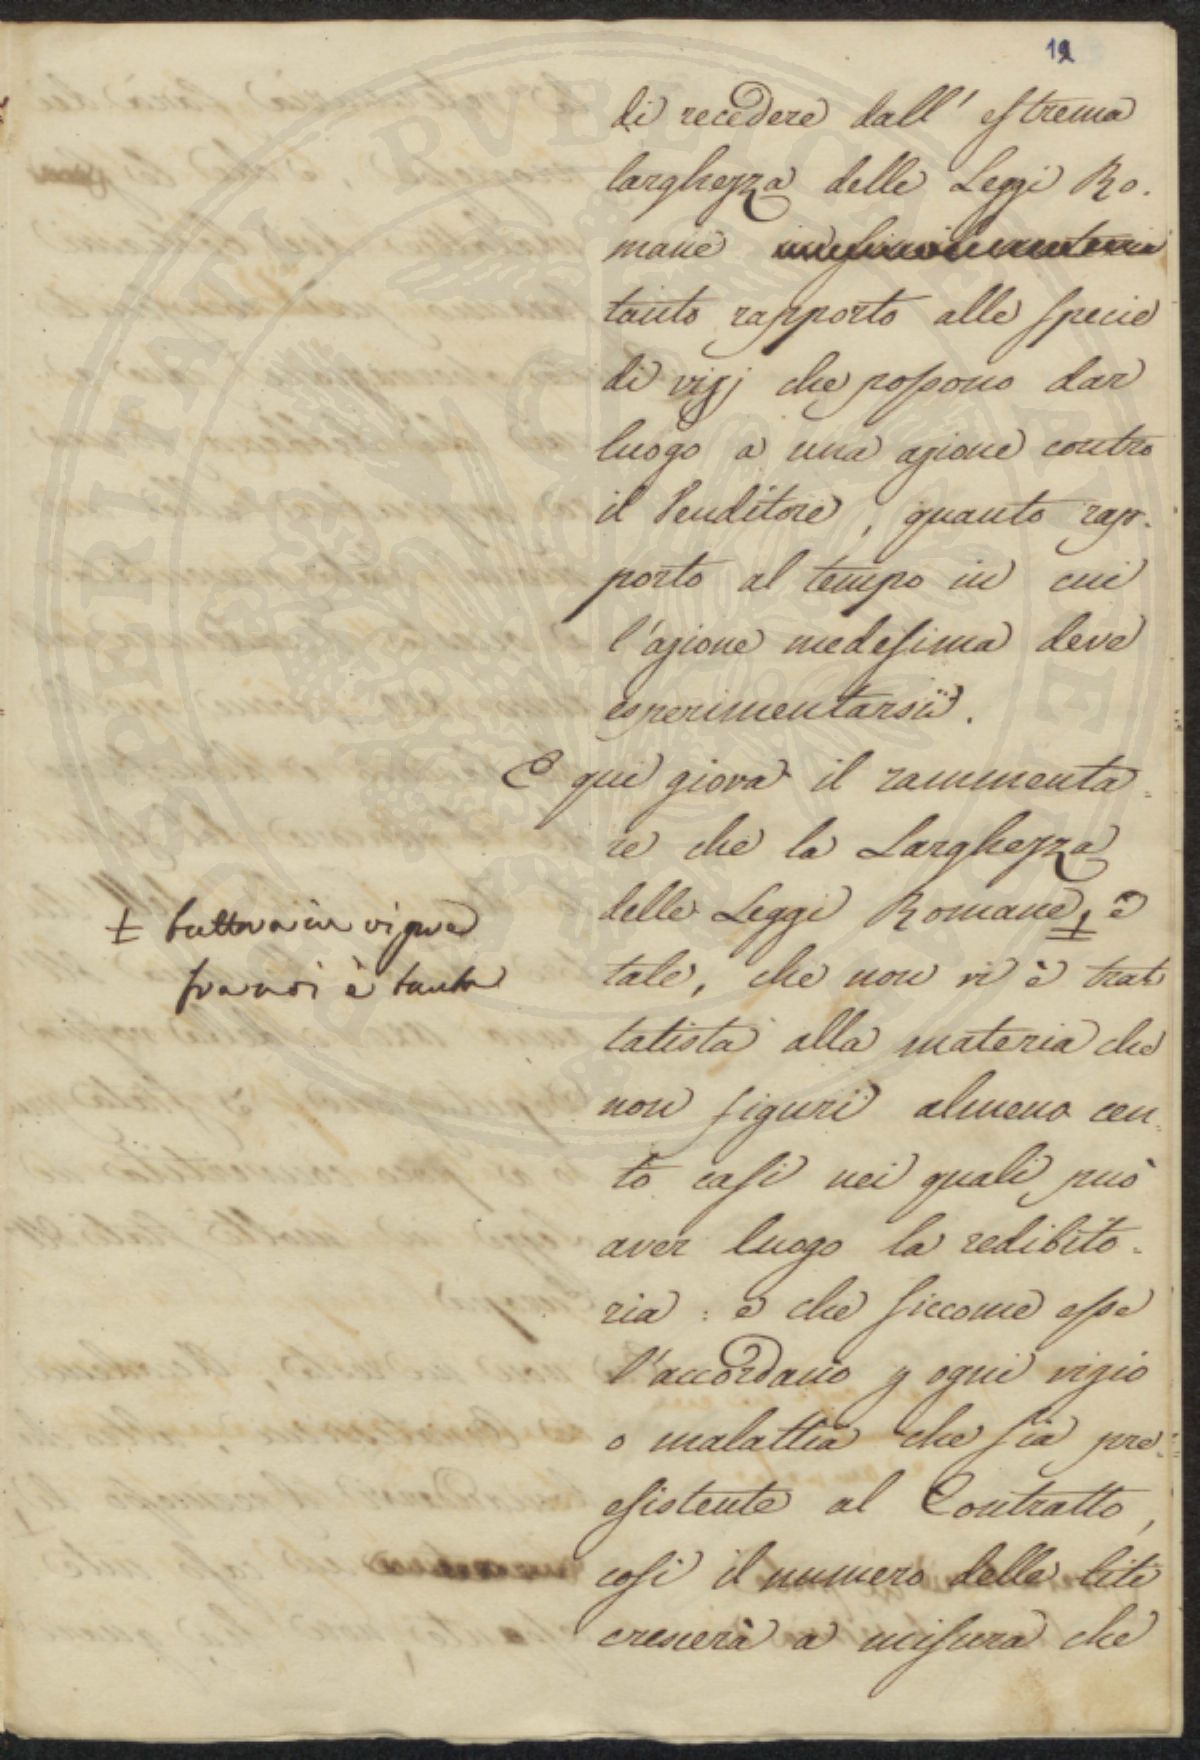 12
di recedere dall' estrema
larghezza delle Leggi Ro-
mane
tanto rapporto alle specie
di vizj che possono dar
luogo a una azione contro
il Venditore, quanto rap-
porto al tempo in cui
l'azione medesima deve
esperimentarsi.
E qui giova il rammenta-
re che la Larghezza
delle Leggi Romane, ± è
± tuttora in vigore
fra noi è tanta
tale, che non vi è trat
tatista alla materia che
non figuri almeno cen-
to casi nei quali può
aver luogo la redibito-
ria: e che siccome esse
l'accordano p ogni vizio
o malattia che sia pre-
esistente al Contratto,
così il numero delle liti
crescerà a misura che
PVBLICAE
PROSPERITATI